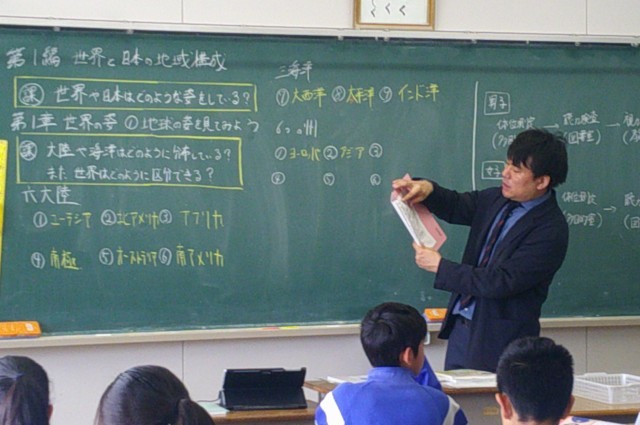 第1編 世界と日本の地域構成
課 世界や日本はどのような姿をしている?
第1章 世界の姿 ①地球の姿を見てみよう
課 大陸や海洋はどのように分布している?
また、世界はどのように区分できる?
六大陸
①ユーラシア ②北アメリカ ③アフリカ
④南極 ⑤オーストラリア ⑥南アメリカ
三海洋
①大西洋 ②太平洋 ③インド洋
6つの州
①ヨーロッパ ②アジア ③
④ ⑤ ⑥
男子
身体測定 → 視力検査 →
女子
身体測定